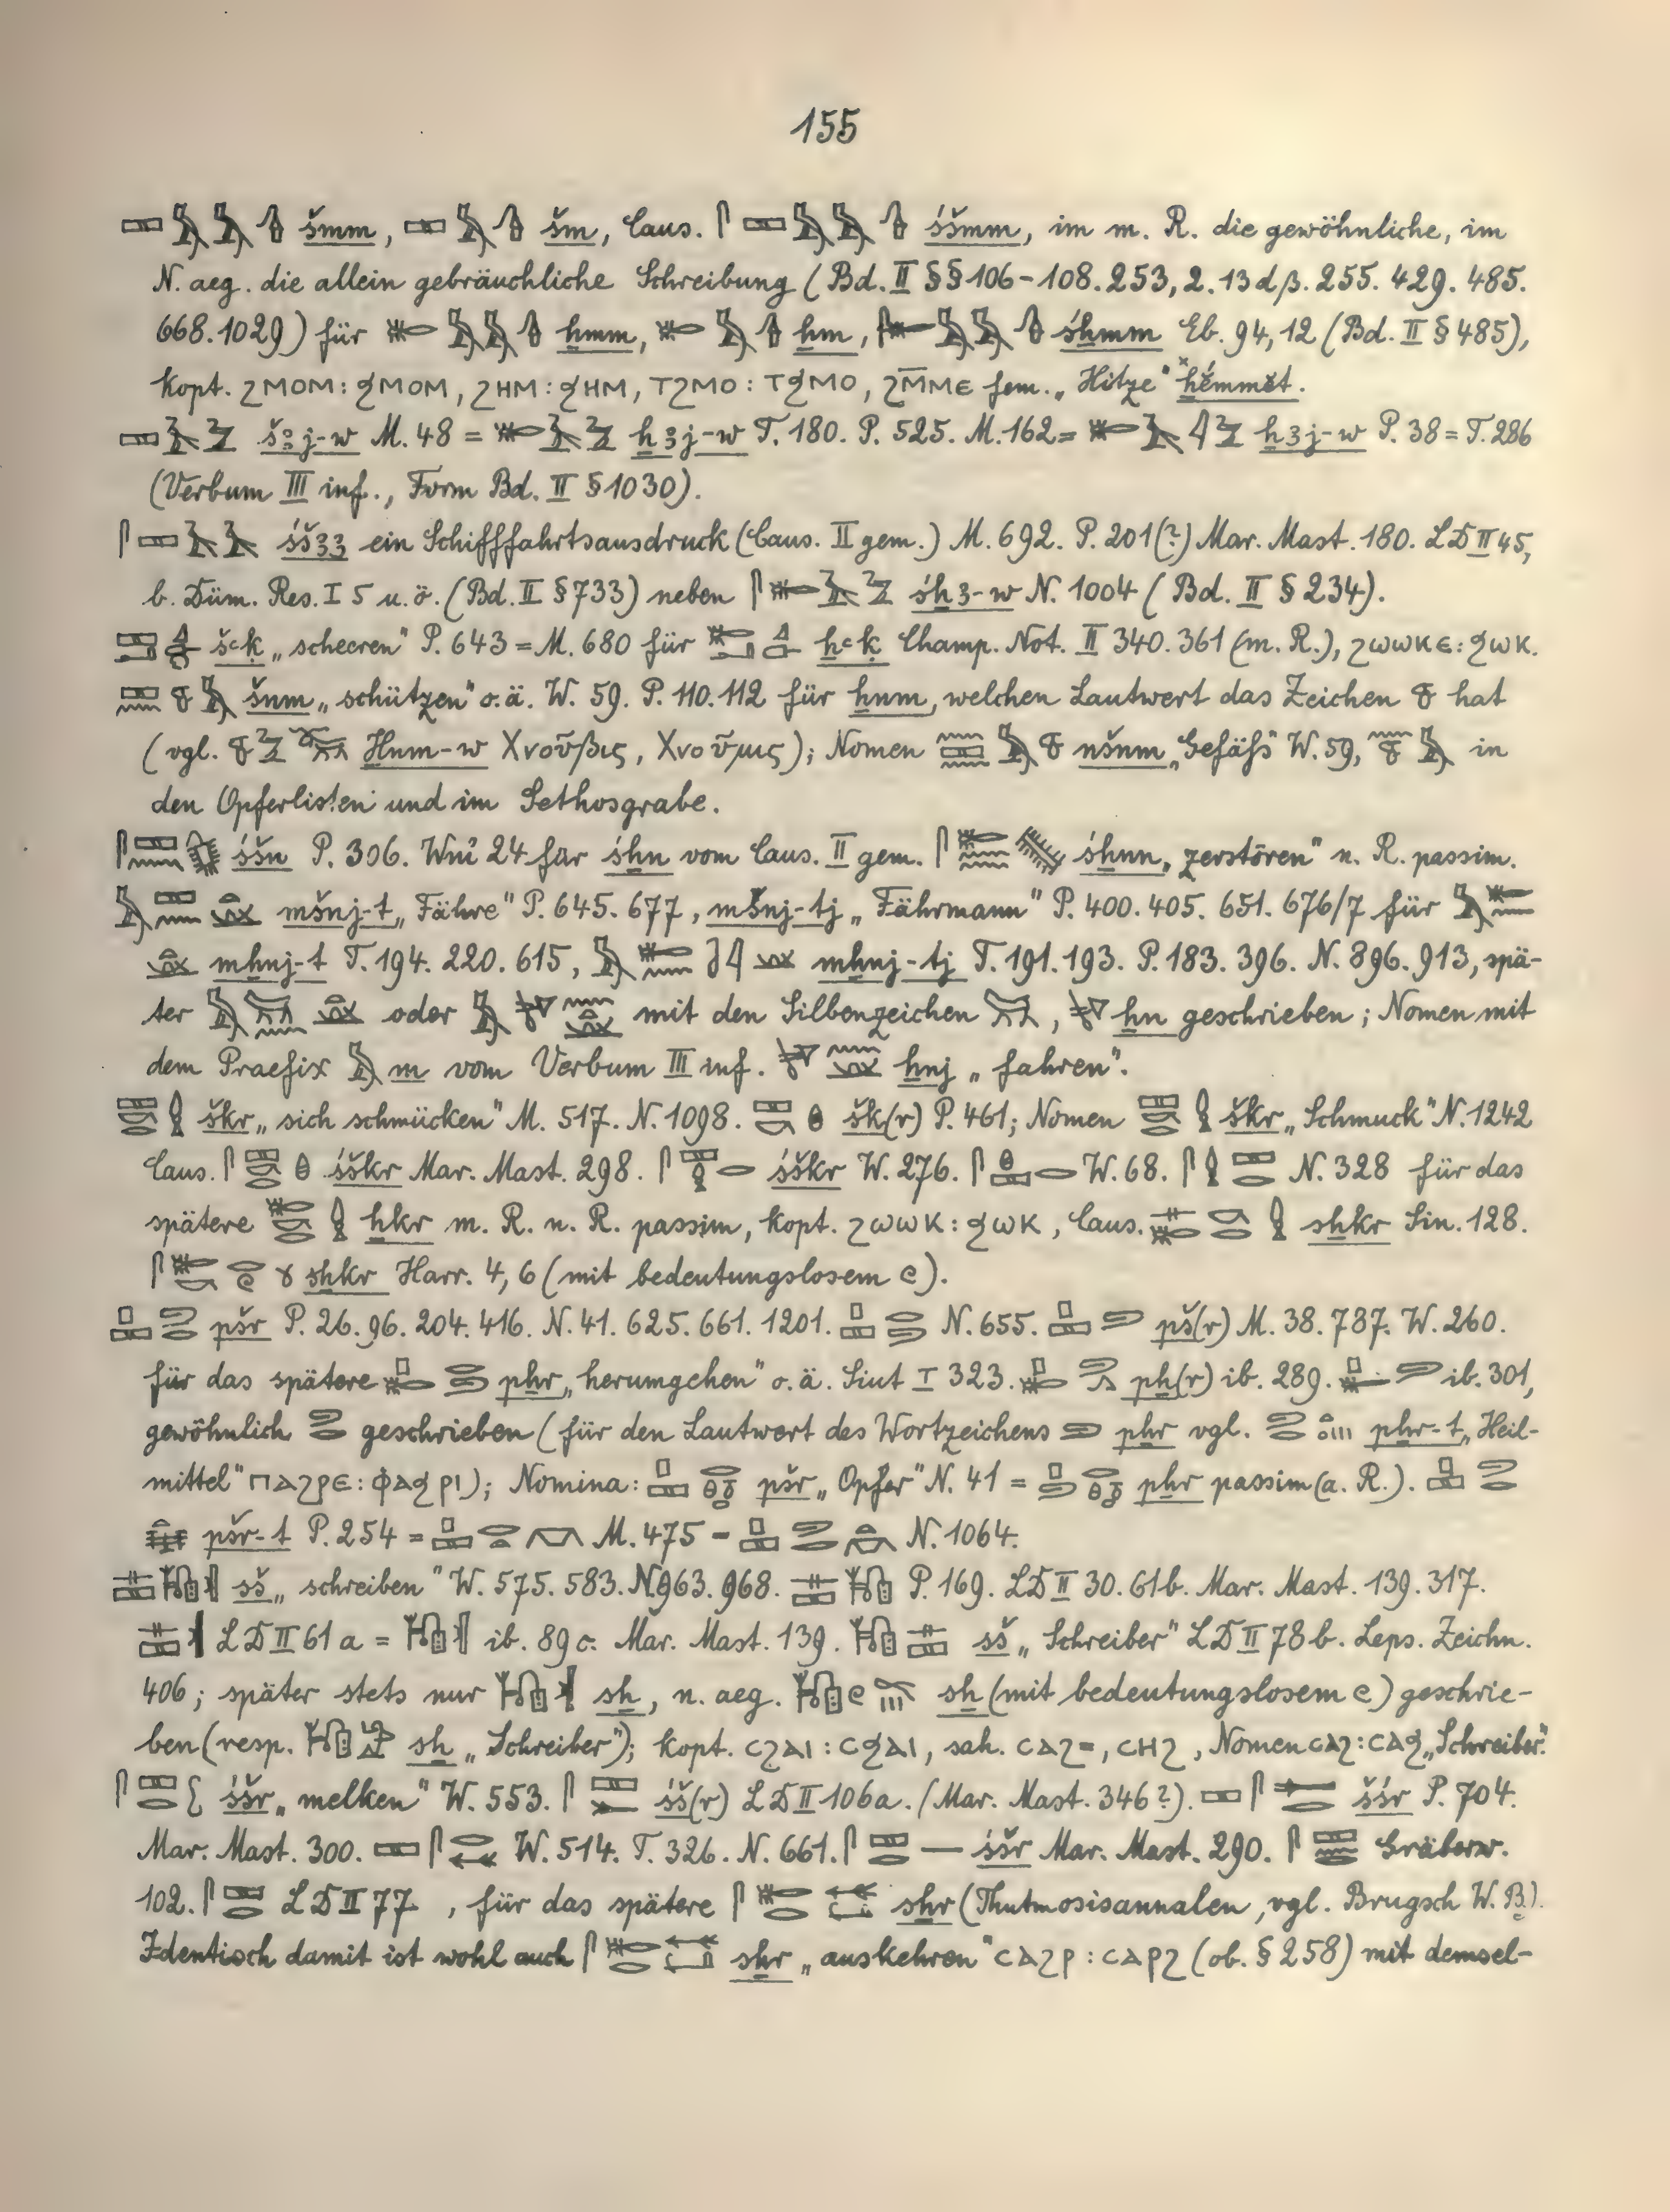 155
šmm, šm, Caus. śšmm, im m. R. die gewöhnliche, im
N. aeg. die allein gebräuchliche Schreibung (Bd. II §§106-108. 253, 2. 13 dβ. 255. 429. 485.
668. 1029) für ẖmm, ẖm, śẖmm Eb. 94, 12 (Bd. II § 485),
kopt. ϩⲙⲟⲙ : ϧⲙⲟⲙ, ϩⲏⲙ : ϧⲏⲙ, ⲧϩⲙⲟ : ⲧϧⲙⲟ, ϩⲙ̅ⲙⲉ fem. „Hitze" ẖĕ́mmĕt.
š3j-w M. 48 = ẖ3j-w T. 180. P. 525. M. 162 = ẖ3j-w P. 38 = T. 286
(Verbum III inf., Form Bd. II § 1030).
śš33 ein Schifffahrtsausdruck (Caus. II gem.) M. 692. P. 201(?) Mar. Mast. 180. LD II 45,
b. Düm. Res. I 5 u. ö. (Bd. II § 733) neben śẖ3-w N. 1004 (Bd. II § 234).
šꜥḳ „scheeren" P. 643 = M. 680 für ẖꜥḳ Champ. Not. II 340. 361 (m. R.), ϩⲱⲱⲕⲉ : ϧⲱⲕ.
šnm „schützen" o. ä. W. 59. P. 110. 112 für ẖnm, welchen Lautwert das Zeichen hat
(vgl. H̱nm-w Χνοῦβις, Χνοῦμις); Nomen nšnm „Gefäß" W. 59, in
den Opferlisten und im Sethosgrabe.
śšn P. 306. Wnî 24 für śẖn vom Caus. II gem. śẖnn „zerstören" n. R. passim.
mšnj-t „Fähre" P. 645. 677, mšnj-tj „Fährmann" P. 400. 405. 651. 676/7 für
mẖnj-t T. 194. 220. 615, mẖnj-tj T. 191. 193. P. 183. 396. N. 896. 913, spä-
ter oder mit den Silbenzeichen , ẖn geschrieben; Nomen mit
dem Praefix m vom Verbum III inf. ẖnj „fahren".
škr „sich schmücken" M. 517. N. 1098. šk(r) P. 461; Nomen škr „Schmuck" N. 1242
Caus. śškr Mar. Mast. 298. śškr W. 276. W. 68. N. 328 für das
spätere ẖkr m. R. n. R. passim, kopt. ϩⲱⲱⲕ : ϧⲱⲕ, Caus. sẖkr Sin. 128.
sẖkr Harr. 4, 6 (mit bedeutungslosem ).
pšr P. 26. 96. 204. 416. N. 41. 625. 661. 1201. N. 655. pš(r) M. 38. 787. W. 260.
für das spätere pẖr „herumgehen" o. ä. Siut I 323. pẖ(r) ib. 289. ib. 301,
gewöhnlich geschrieben (für den Lautwert des Wortzeichens pẖr vgl. pẖr-t „Heil-
mittel" ⲡⲁϩⲣⲉ : ⲫⲁϧⲣⲓ); Nomina: pšr „Opfer" N. 41 = pẖr passim (a. R.).
pšr-t P. 254 = M. 475 = N. 1064.
sš „schreiben" W. 575. 583. N. 963. 968. P. 169. LD II 30. 61b. Mar. Mast. 139. 317.
LD II 61 a = ib. 89 c. Mar. Mast. 139. sš „Schreiber" LD II 78 b. Leps. Zeichn.
406; später stets nur sẖ, n. aeg. sẖ (mit bedeutungslosem ) geschrie-
ben (resp. sẖ „Schreiber"); kopt. ⲥϩⲁⲓ : ⲥϧⲁⲓ, sah. ⲥⲁϩ=, ⲥⲏϩ, Nomen ⲥⲁϩ : ⲥⲁϧ „Schreiber".
śšr „melken" W. 553. śš(r) LD II 106a. (Mar. Mast. 346?). šśr P. 704.
Mar. Mast. 300. W. 514. T. 326. N. 661. śšr Mar. Mast. 290. Gräberw.
102. LD II 77 , für das spätere sẖr (Thutmosisannalen, vgl. Brugsch W. B.).
Identisch damit ist wohl auch sẖr „auskehren" ⲥⲁϩⲣ : ⲥⲁⲣϩ (ob. § 258) mit demsel-